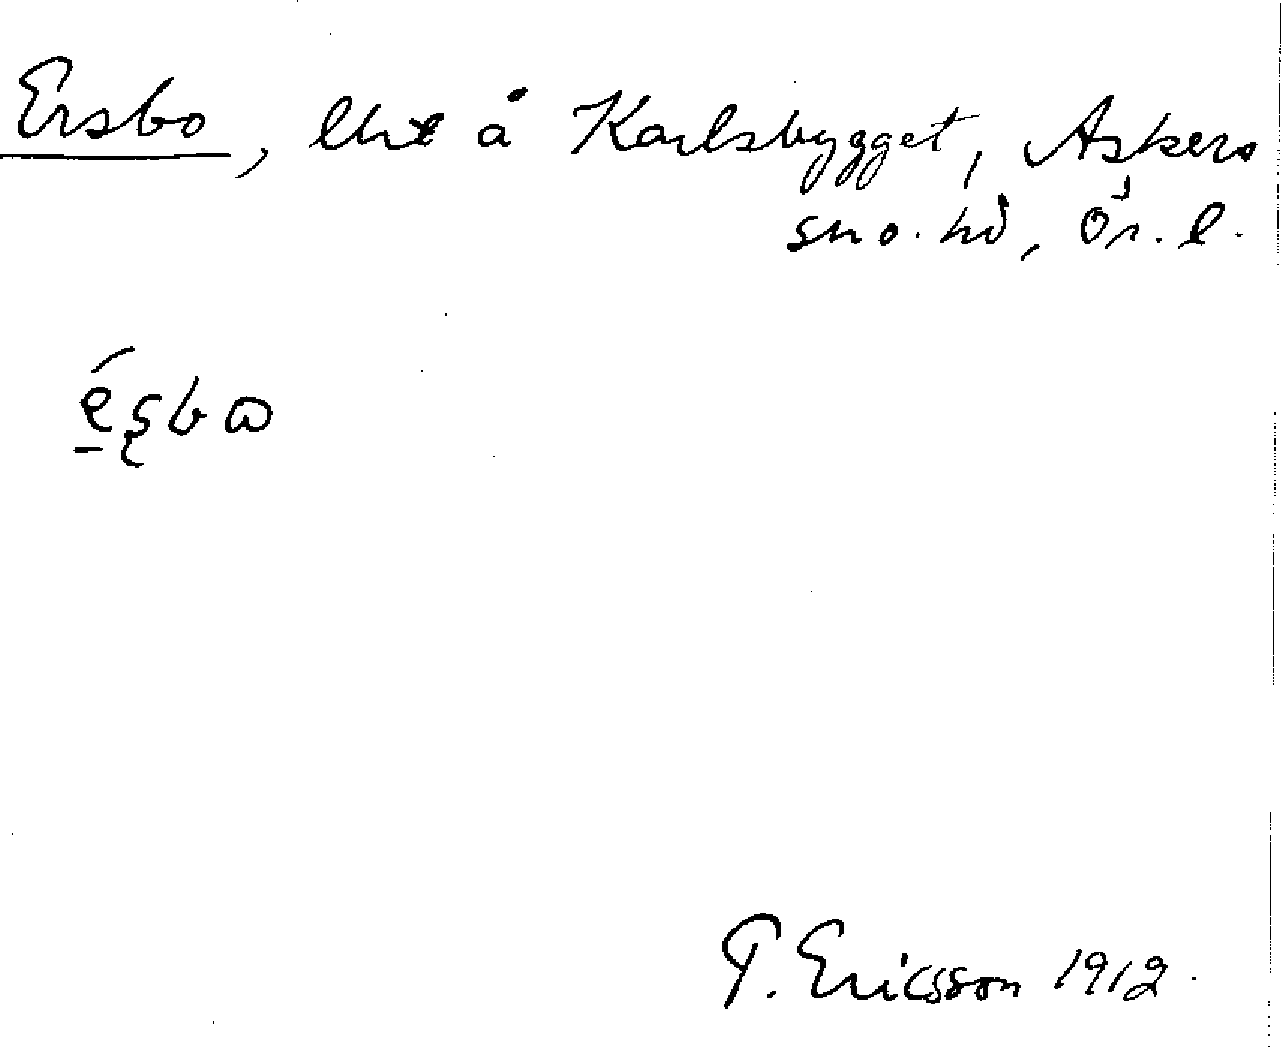 Ersbo, lht å Karlsbygget, Askers
sn o. hd, Ör. l.
T. Ericsson 1912.